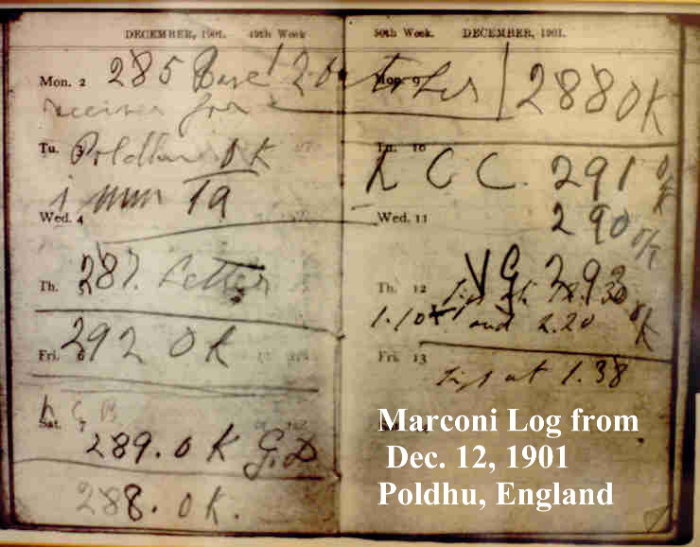 DECEMBER, 1901. 49th Week
Mon. 2 285
receiver for
Tu. 3 Poldhu OK
1 mm Ta
Wed. 4
Th. 287. Letter
Fri. 6 292 OK
Sat. 7
289. OK G.D
288. OK.
50th Week. DECEMBER, 1901.
Mon 9 288 OK
Tu. 10
C C. 291 OK
Wed. 11 290 OK
Th. 12 VG 293 OK
Sigs at 12.30
1.10 and 2.20
Fri. 13
Sigs at 1.38
Marconi Log from
Dec. 12, 1901
Poldhu, England